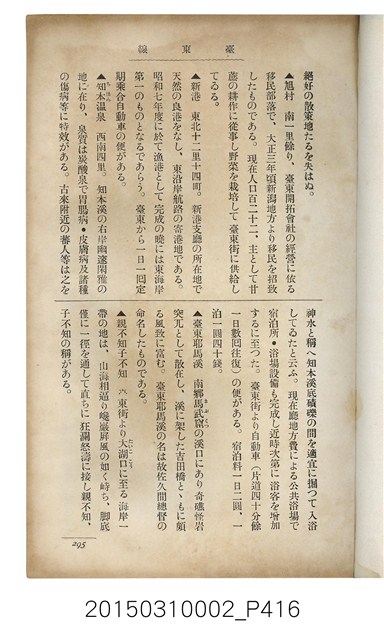 臺東線
絕好の散策地たるを失はぬ。
▲旭村　南一里餘り、臺東開拓會社の經營に依る
移民部落で、大正三年頃新潟地方より移民を招致
したものである。現在人口百二十二、主として甘
蔗の耕作に從事し野菜を栽培して臺東街に供給し
てゐる。
▲新港　東北十二里十四町。新港支廳の所在地で
天然の良港をなし、東沿岸航路の寄港地である。
昭和七年度に於て漁港として完成の曉には東海岸
第一のものとなるであらう。臺東から一日一囘定
期乘合自動車の便がある。
▲知本溫泉　西南四里。知本溪の右岸幽邃閑雅の
地に在り、泉質は炭酸泉で胃腸病・皮膚病及諸種
の傷病等に特效がある。古來附近の蕃人等は之を
神水と稱へ知本溪底磧礫の間を適宜に掘つて入浴
してゐたと云ふ。現在廳地方費による公共浴場で
宿泊所・浴場設備も完成し近時次第に浴客を增加
するに至つた。臺東街より自動車（片道四十分餘
一日數囘往復）の便がある。宿泊料一日二圓、一
泊一圓四十錢。
▲臺東耶馬溪　南鄉馬武窟の溪口にあり奇礁怪岩
突兀として散在し、溪に架した吉田橋と丶もに頗
る風致に富む。臺東耶馬溪の名は故佐久間總督の
命名したものである。
▲親不知子不知　臺東街より大湖口に至る海岸一
帶の地は、山海相逼り巉巖屏風の如く峙ち、脚底
僅に一徑を通して直ちに狂瀾怒濤に接し親不知、
子不知の稱がある。
295
20150310002_P416